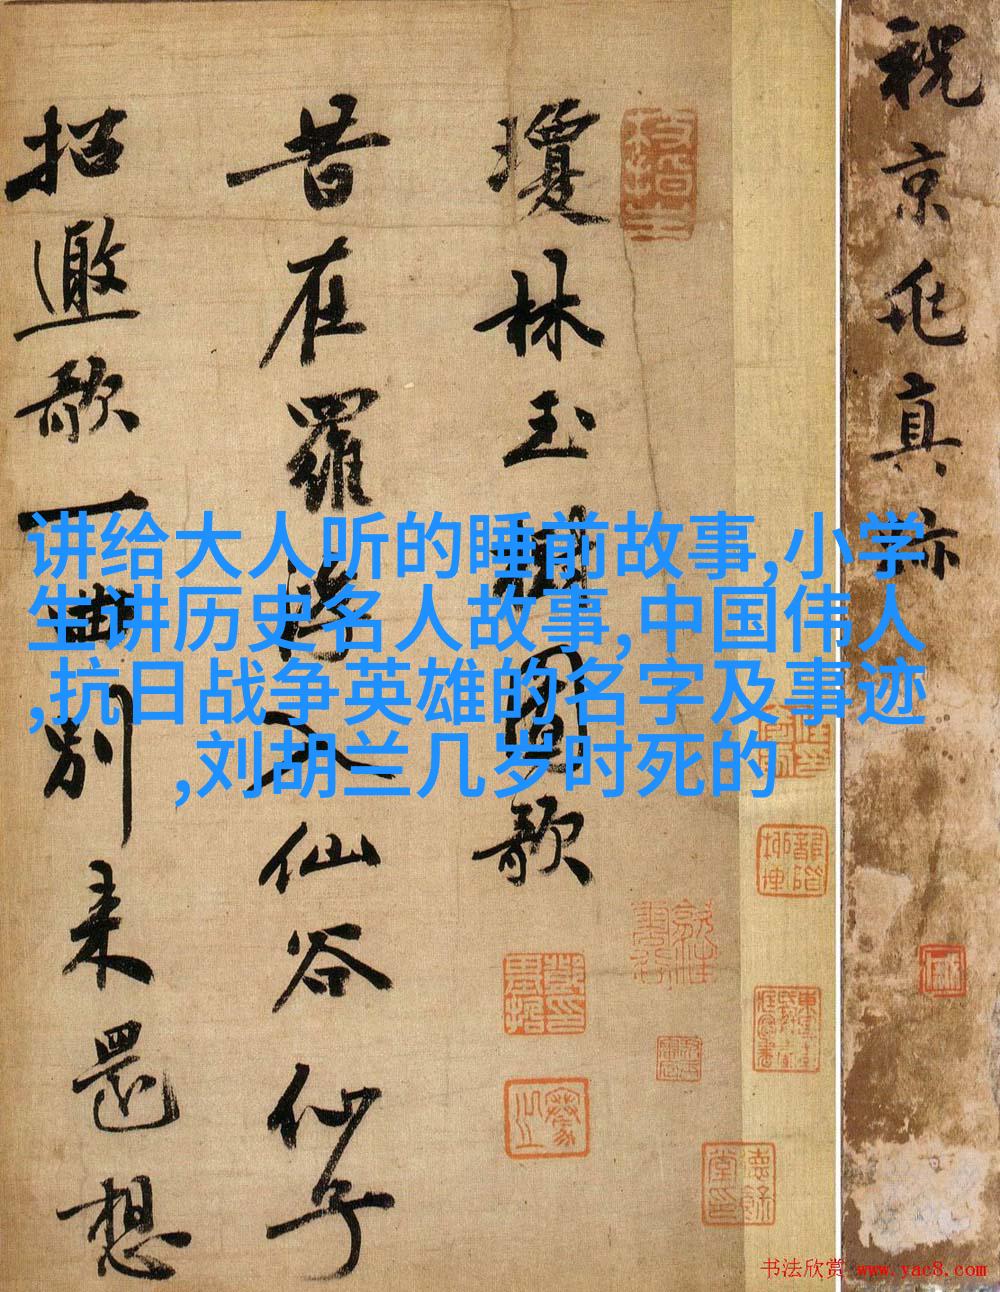 祝京兆真跡
瓊林玉樹圖歌
昔在羅浮入仙谷仙子
招邀歌一曲別来還想
讲给大人听的睡前故事,小学
生讲历史名人故事,中国伟人
,抗日战争英雄的名字及事迹
,刘胡兰几岁时死的
书法欣赏 www.yac8.com